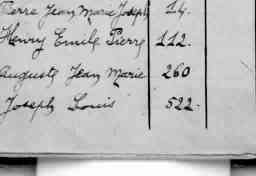 Pierre Jean Marie Joseph 14.
Henry Emile Pierre 112.
Auguste Jean Marie 260
Joseph Louis 522.